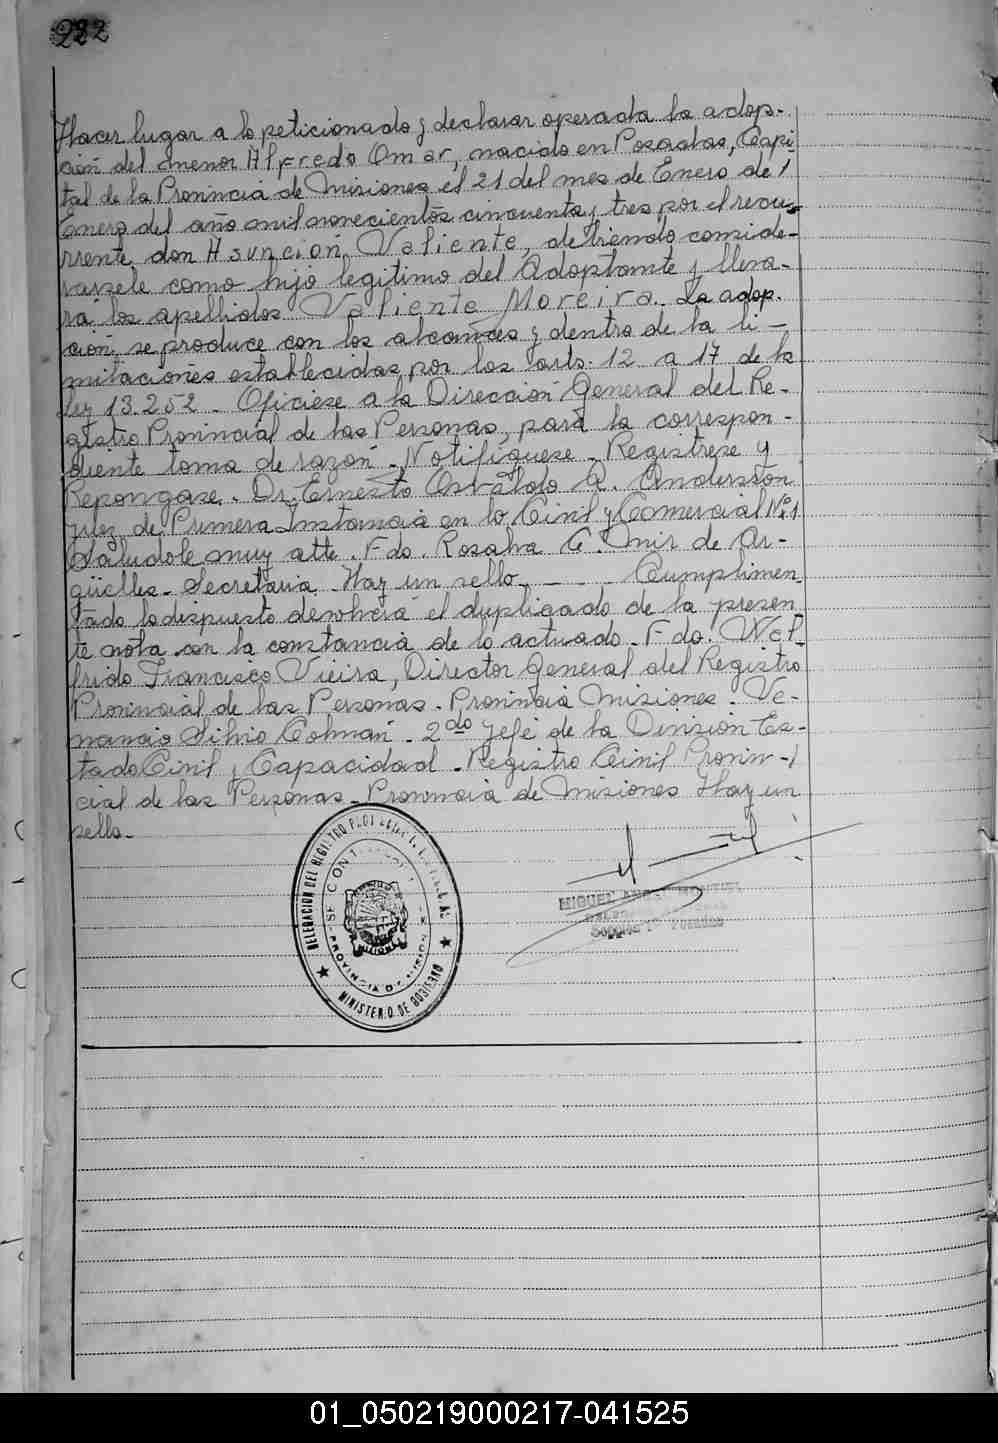 222
Hacer lugar a lo peticionado y declarar operada la adop-
ción del menor Alfredo Omar, nacido en Posadas, Capi
tal de la Provincia de Misiones el 21 del mes de Enero de 1
Enero del año mil novecientos cincuenta y tres por el recu-
rrente don Asuncion Valiente, debiendo conside-
rarsele como hijo legitimo del Adoptante y lleva-
rá los apellidos Valiente Moreira. La adop.
ción, se produce con los alcances y dentro de la li-
mitaciones establecidas por los arts. 12 a 17 de la
Ley 13.252 - Oficiese a la Dirección General del Re-
gistro Provincial de las Personas, para la correspon-
diente toma de razón - Notifiquese - Registrese y
Repongase. Dr. Ernesto Osvaldo A. Andersson
Juez de Primera Instancia en lo Civil y Comercial Nº 1
Saludole muy atte. Fdo. Rosalva G. Mir de Ar-
güelles - Secretaria. Hay un sello. - - - Cumplimen
tado lo dispuesto devolverá el duplicado de la presen
te nota con la constancia de lo actuado - Fdo. Wal-
frido Francisco Vieira, Director General del Registro
Provincial de las Personas - Provincia Misiones. Ve-
nancio Silvio Colmán - 2do Jefe de la División Es-
tado Civil y Capacidad - Registro Civil Provin-
cial de las Personas - Provincia de Misiones Hay un
sello -
DELEGACION DEL REGISTRO
PROVINCIA DE MISIONES
MINISTERIO DE GOBIERNO
MIGUEL
Posadas
01_050219000217-041525